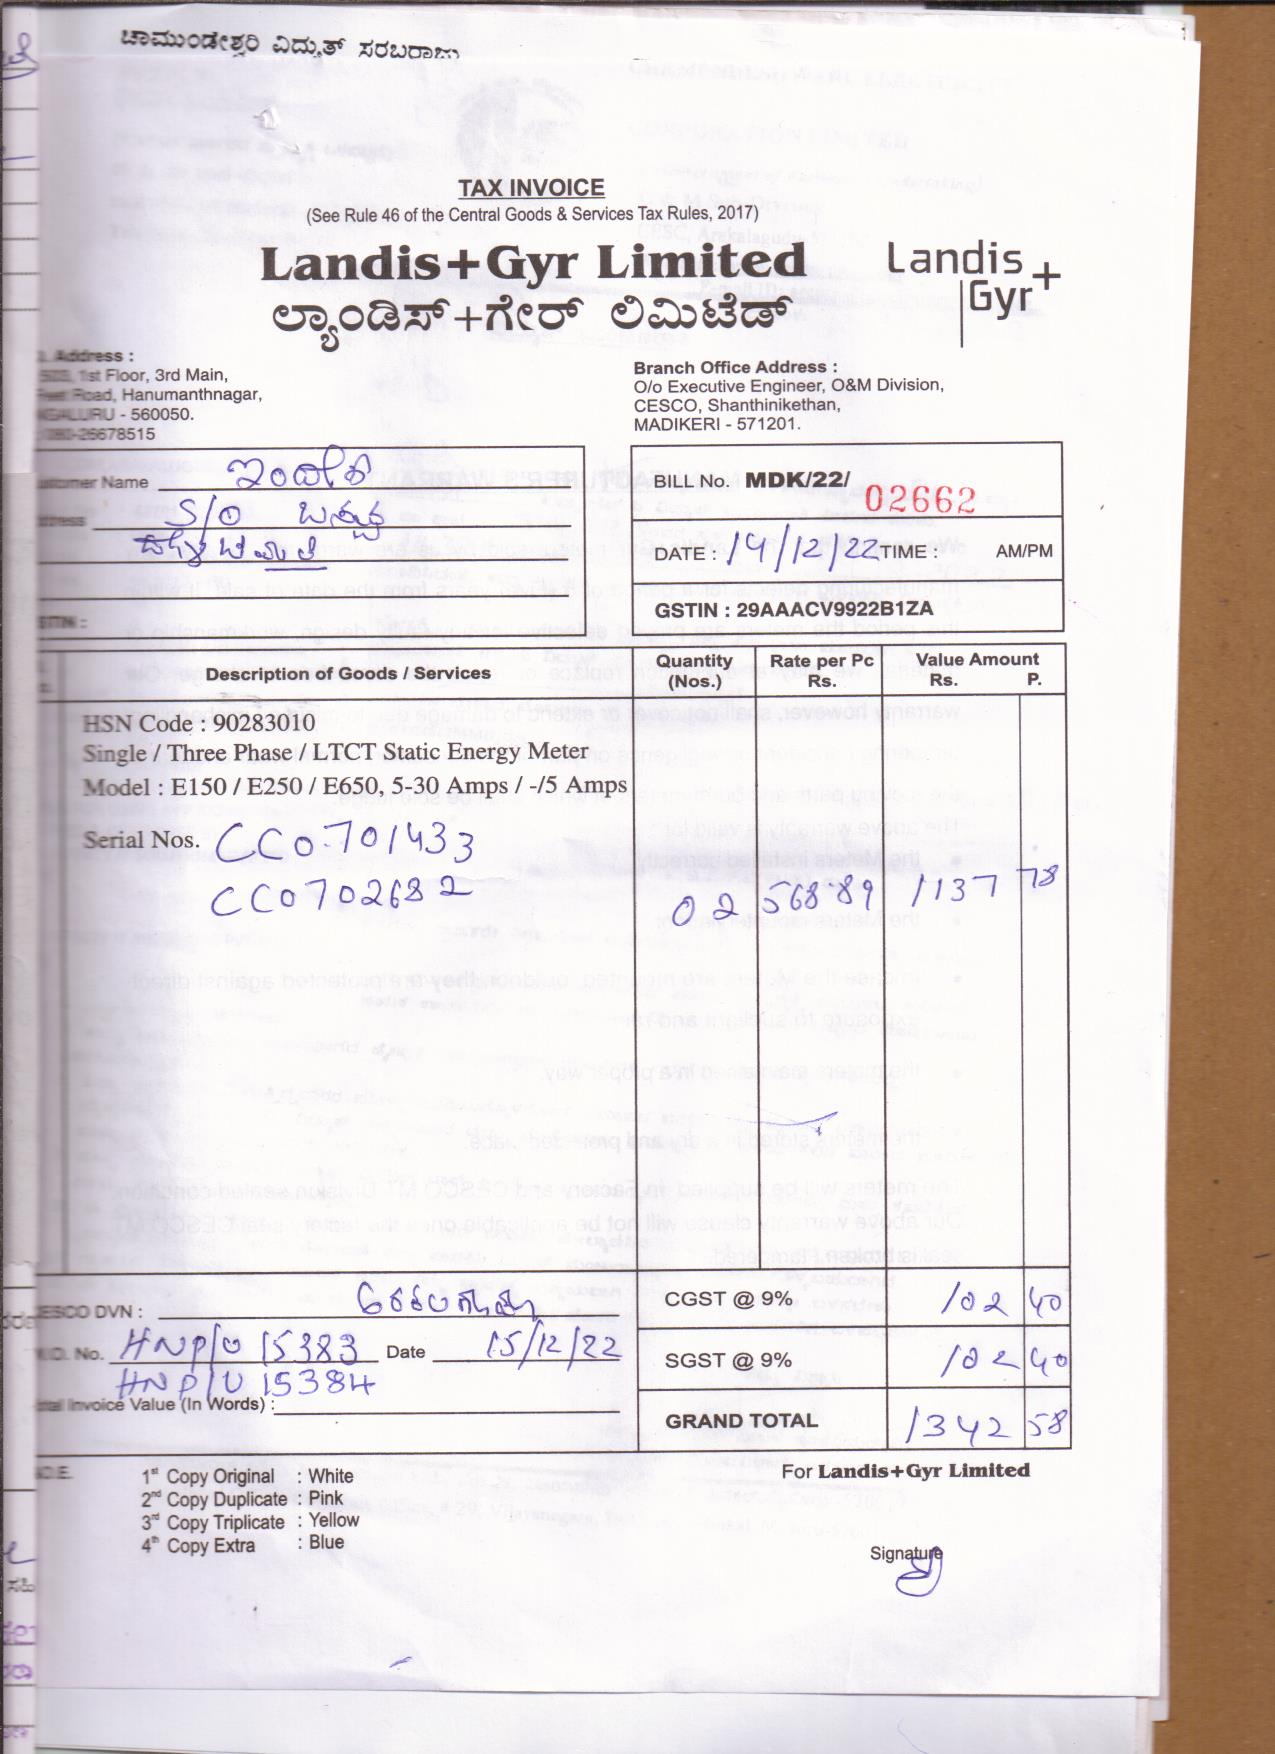 ಚಾಮುಂಡೇಶ್ವರಿ ವಿದ್ಯುತ್ ಸರಬರಾಜು
TAX INVOICE
(See Rule 46 of the Central Goods & Services Tax Rules, 2017)
Landis+Gyr Limited
Landis
Gyr+
ಲ್ಯಾಂಡಿಸ್+ಗೇರ್ ಲಿಮಿಟೆಡ್
Address :
1st Floor, 3rd Main,
Road, Hanumanthnagar,
- 560050.
080-26678515
Branch Office Address :
O/o Executive Engineer, O&M Division,
CESCO, Shanthinikethan,
MADIKERI - 571201.
Name
S/O
BILL No. MDK/22/ 02662
DATE : 19/12/22 TIME : AM/PM
GSTIN : 29AAACV9922B1ZA
Description of Goods / Services
Quantity (Nos.)
Rate per Pc Rs.
Value Amount Rs. P.
HSN Code : 90283010
Single / Three Phase / LTCT Static Energy Meter
Model : E150 / E250 / E650, 5-30 Amps / -/5 Amps
Serial Nos. CC0701433
CC0702682 02 568.89 1137 78
CESCO DVN :
CGST @ 9% 102 40
No. HNP/U 15383 Date 15/12/22
HNP/U 15384
SGST @ 9% 102 40
Invoice Value (In Words) :
GRAND TOTAL 1342 58
1st Copy Original : White
2nd Copy Duplicate : Pink
3rd Copy Triplicate : Yellow
4th Copy Extra : Blue
For Landis+Gyr Limited
Signature